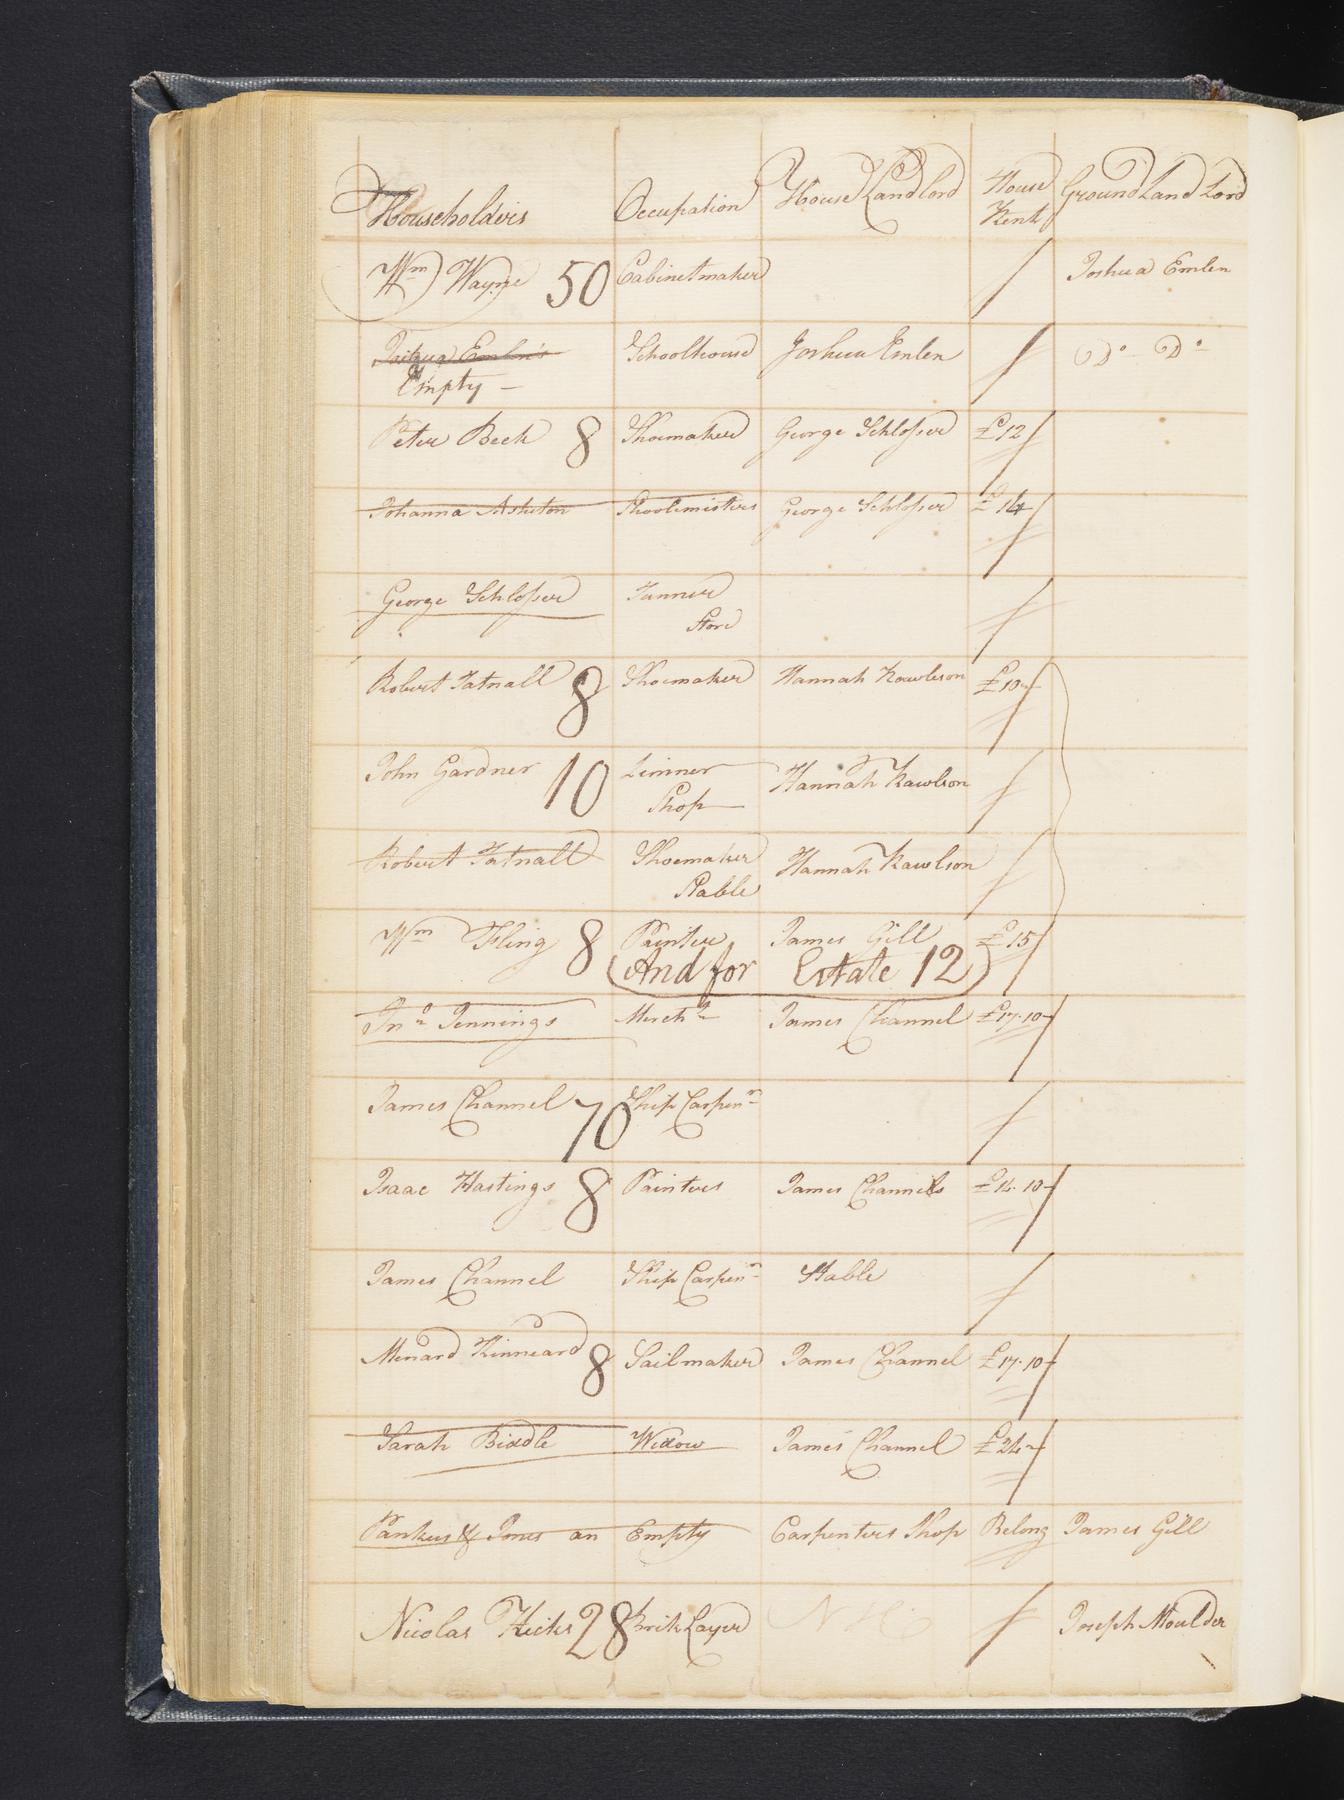 Householders Occupation House Landlord House Rent Ground Land Lord
Wm Wayne 50 Cabinetmaker Joshua Emlen
Joshua Emlen's Schoolhouse Joshua Emlen Do Do
Empty
Peter Beck 8 Shoemaker George Schlosser £12
Johanna Asheton Schoolmistres George Schlosser £14
George Schlosser Tanner
Store
Robert Tatnall 8 Shoemaker Hannah Rawlson £10
John Gardner 10 Limner Hannah Rawlson
Shop
Robert Tatnall Shoemaker Hannah Rawlson
Stable
Wm Fling 8 Painter James Gill £15
And for Estate 12
Jno Jennings Mercht James Channel £17.10
James Channel 70 Ship Carpenr
Isaac Hastings 8 Painter James Channels £14.10
James Channel Ship Carpenr Stable
Menard Kinneard 8 Sailmaker James Channel £17.10
Sarah Biddle Widow James Channel £24
& Jones an Empty Carpenters Shop Belong James Gill
Nicolas Hicks 28 Brik Layer N H Joseph Moulder